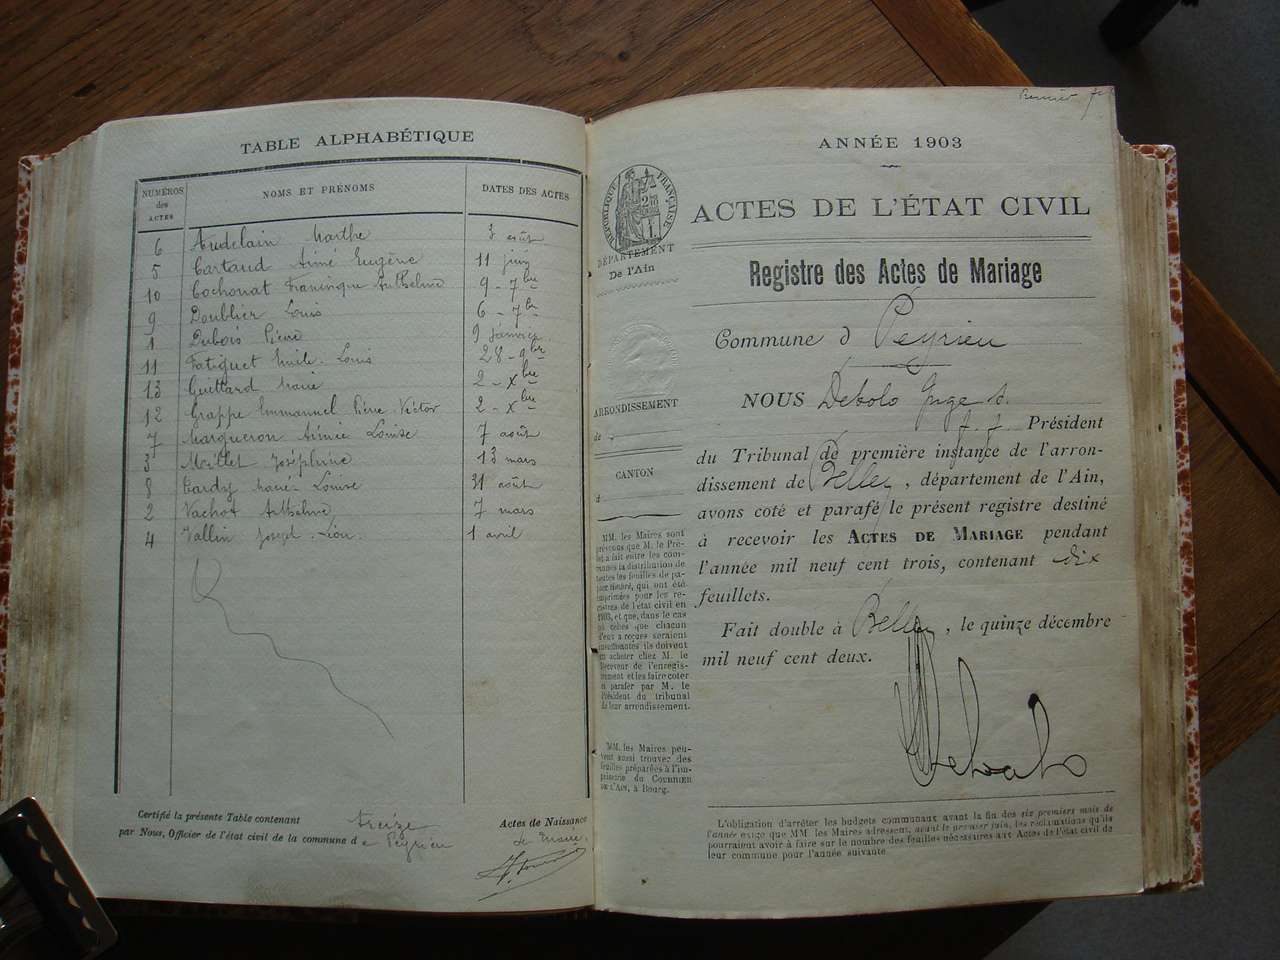 TABLE ALPHABÉTIQUE
NUMÉROS des ACTES NOMS ET PRÉNOMS DATES DES ACTES
6 Audelain Marthe 3 août
5 Cartaud Aimé Eugène 11 juin
10 Cochonat Anthelme 9 - 7bre
9 Doublier Louis 6 - 7bre
1 Dubois Pierre 9 janvier
11 Fatiguet Emile Louis 28 - 9bre
13 Guittard Marie 2 - Xbre
12 Grappe Emmanuel Pierre Victor 2 - Xbre
7 Margueron Aimée Louise 7 août
3 Millet Joséphine 13 mars
8 Tardy Marie Louise 31 août
2 Vachot Anthelme 7 mars
4 Vallin Joseph Léon 1 avril
Certifié la présente Table contenant treize Actes de Naissance
par Nous, Officier de l'état civil de la commune de Peyrieu
ANNÉE 1903
RÉPUBLIQUE FRANÇAISE
DÉPARTEMENT
De l'Ain
ACTES DE L'ÉTAT CIVIL
Registre des Actes de Mariage
Commune d Peyrieu
ARRONDISSEMENT
de
CANTON
d
NOUS Debolo Juge d.
f. f. Président
du Tribunal de première instance de l'arron-
dissement de Belley, département de l'Ain,
avons coté et parafé le présent registre destiné
à recevoir les ACTES DE MARIAGE pendant
l'année mil neuf cent trois, contenant dix
feuillets.
Fait double à Belley, le quinze décembre
mil neuf cent deux.
MM. les Maires sont
prévenus que M. le Pré-
fet a fait entre les com-
munes la distribution de
toutes les feuilles de pa-
pier timbré, qui ont été
imprimées pour les re-
gistres de l'état civil en
1903, et que, dans le cas
où celles que chacun
d'eux a reçues seraient
insuffisantes ils doivent
en acheter chez M. le
Receveur de l'enregis-
trement et les faire coter
et parafer par M. le
Président du tribunal
de leur arrondissement.
MM. les Maires peu-
vent aussi trouver des
feuilles préparées à l'im-
primerie du COURRIER
DE L'AIN, à Bourg.
L'obligation d'arrêter les budgets communaux avant la fin des six premiers mois de
l'année exige que MM. les Maires adressent, avant le premier juin, les réclamations qu'ils
pourraient avoir à faire sur le nombre des feuilles nécessaires aux Actes de l'état civil de
leur commune pour l'année suivante